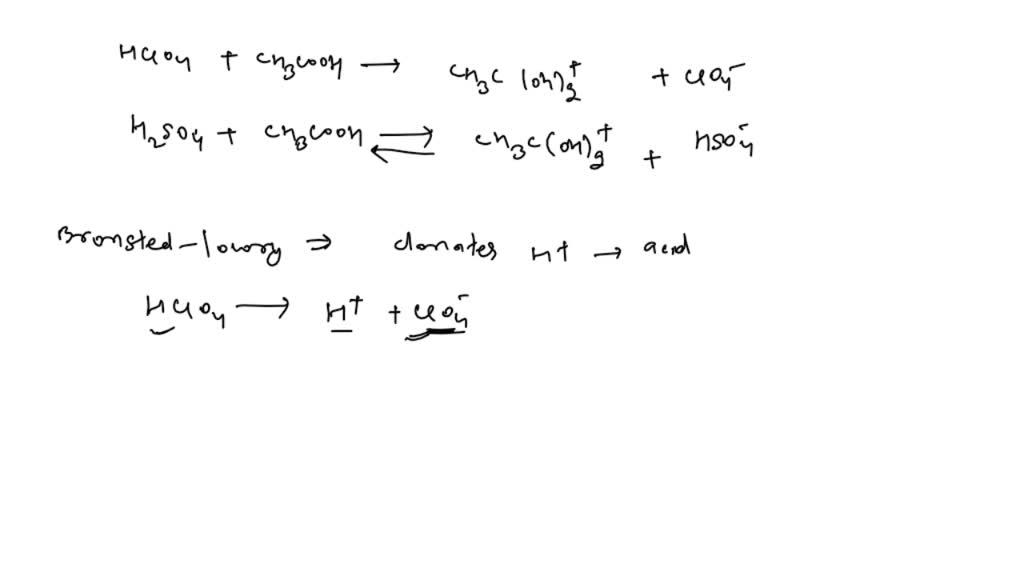 HClO4 + CH3COOH → CH3C(OH)2+ + ClO4-
H2SO4 + CH3COOH ⇌ CH3C(OH)2+ + HSO4-
Bronsted-lowry ⇒ donates H+ → acid
HClO4 → H+ + ClO4-